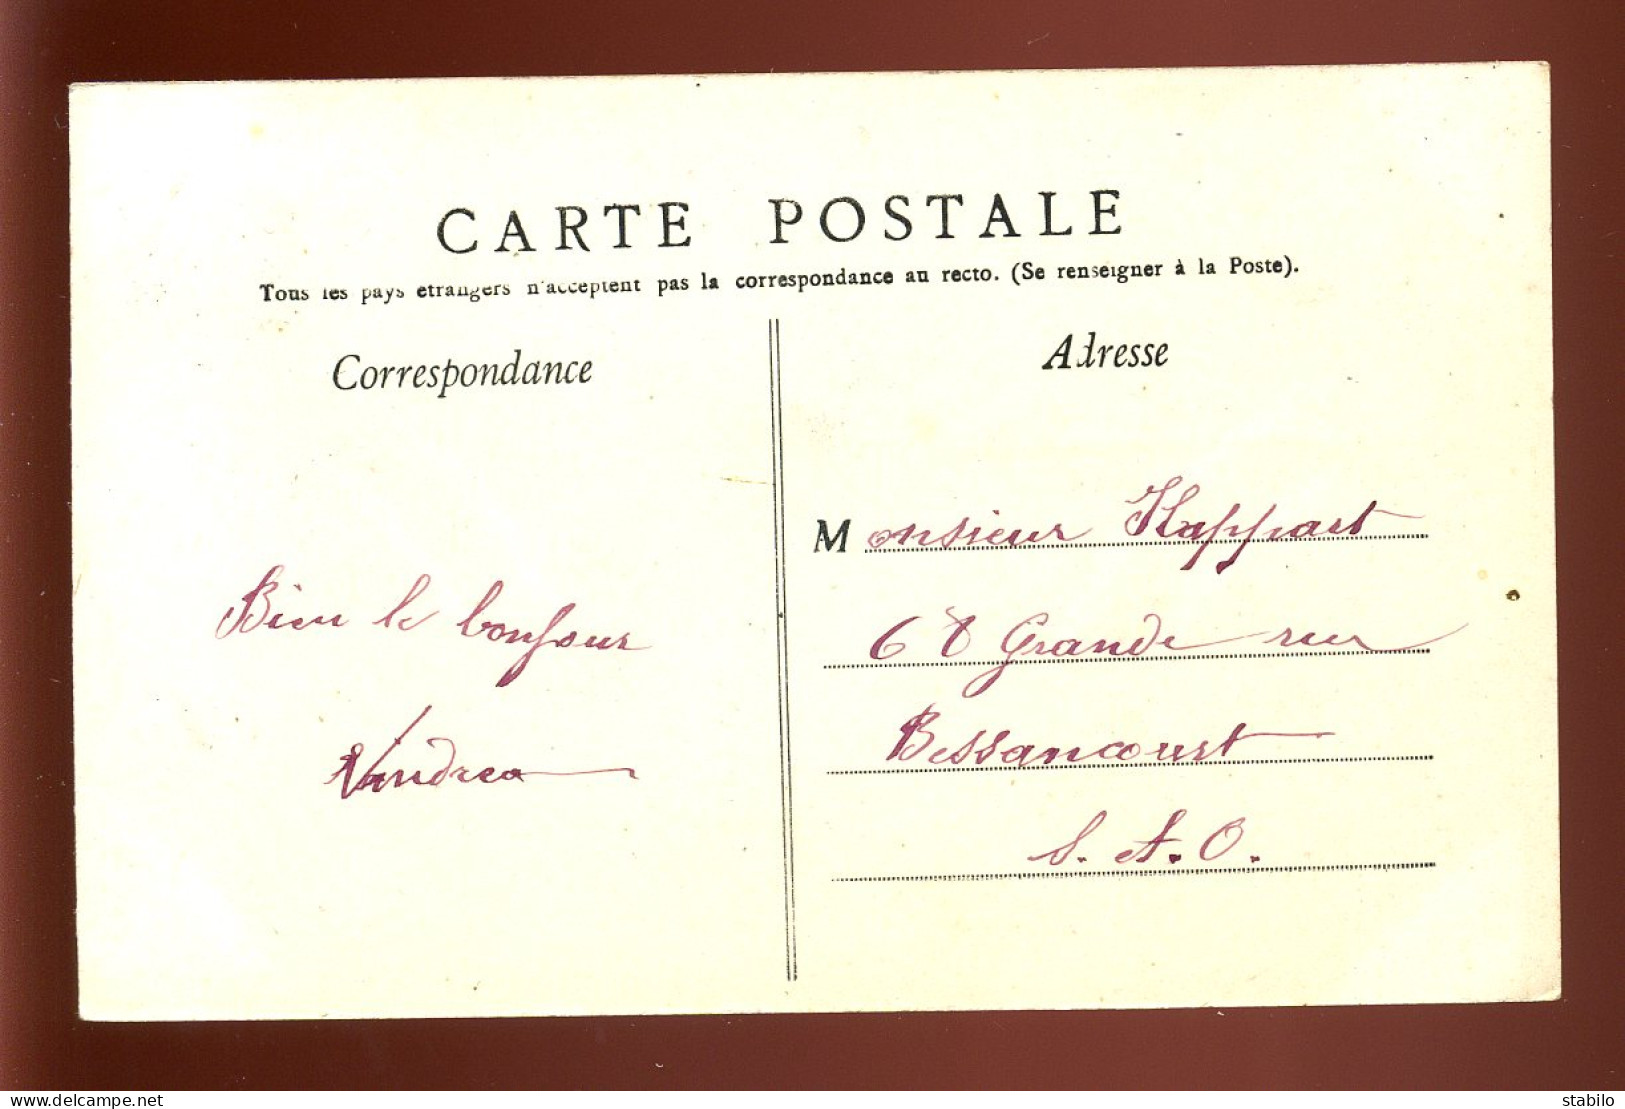 CARTE POSTALE
Tous les pays étrangers n'acceptent pas la correspondance au recto. (Se renseigner à la Poste).
Correspondance
Adresse
Bien le bonjour
Monsieur Happart
Grande rue
Bessancourt
S. et. O.
delcampe.net
stabilo